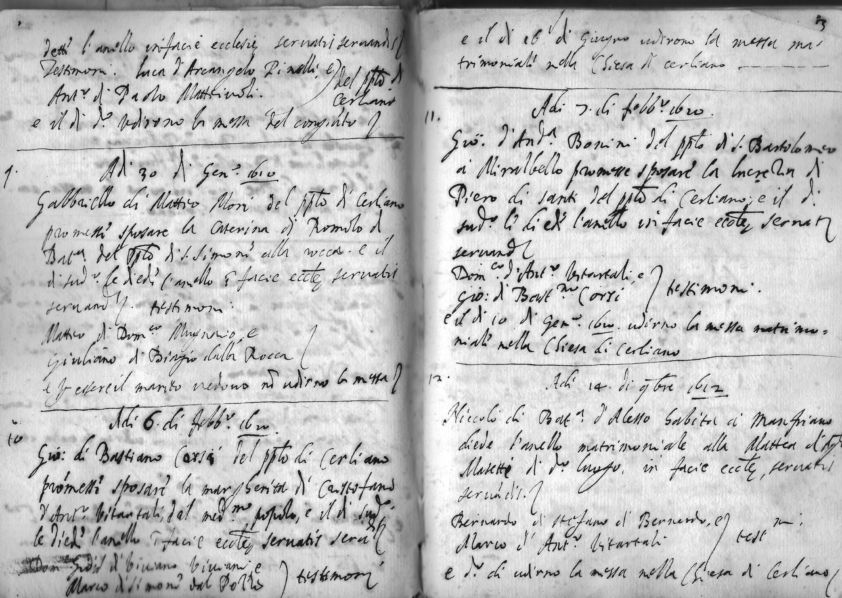 dette l'anello in facie ecclesie servatis servandis
Testimoni. Luca d'Arcangelo Pinelli, e
Ant.o di Paolo Mattivoli. del ppto di
Cerliano
e il di d.o udirono la messa del congiunto
9.
Adi 30 di Gen.o 1610
Gabbriello di Matteo Mori del ppto di Cerliano
promesse sposare la Caterina di Romolo di
Bat.a del ppto di S. Simone alla rocca e il
di sud.o le diede l'anello in facie eccle, servatis
servand. testimoni.
Matteo di Dom.co Mugnaio, e
Giuliano di Biagio dalla Rocca
e p essere il marito vedovo no udirno la messa
10
Adi 6. di febb.o 1610.
Gio: di Bastiano Corsi del ppto di Cerliano
promesse sposare la margherita di Cristofano
d'Ant.o Vitartali, dal med.mo popolo, e il di sud.o
le diede l'anello in facie eccle, servatis serva
Viviano Viviani e
Marco di Simone dal Pozzo testimoni
3
e il di 26 di Giugno udirono la messa ma-
trimoniale nella Chiesa di Cerliano
11.
Adi 7. di febb.o 1610.
Gio: d'And.a Bonini del ppto di S. Bartolomeo
a Mirabello promesse sposare la Lucretia di
Piero di Santi del ppto di Cerliano, e il di
sud.o li diede l'anello in facie eccle, servatis
servand
Dom.co d'Ant.o Vitartali, e
Gio: di Bast.no Corsi testimoni.
e il di 10 di Gen.o 1610. udirno la messa matrimo-
niale nella Chiesa di Cerliano
12.
Adi 14. di 9bre 1612
Niccolò di Bat.a d'Alesso habita a Manfriano
diede l'anello matrimoniale alla Mattea d'Ant.o
Masetti di d.o luogo, in facie eccle, servatis
servandis.
Bernardo di Stefano di Bernardo, e
Marco d'Ant.o Vitartali test.ni
e d.o di udirno la messa nella Chiesa di Cerliano